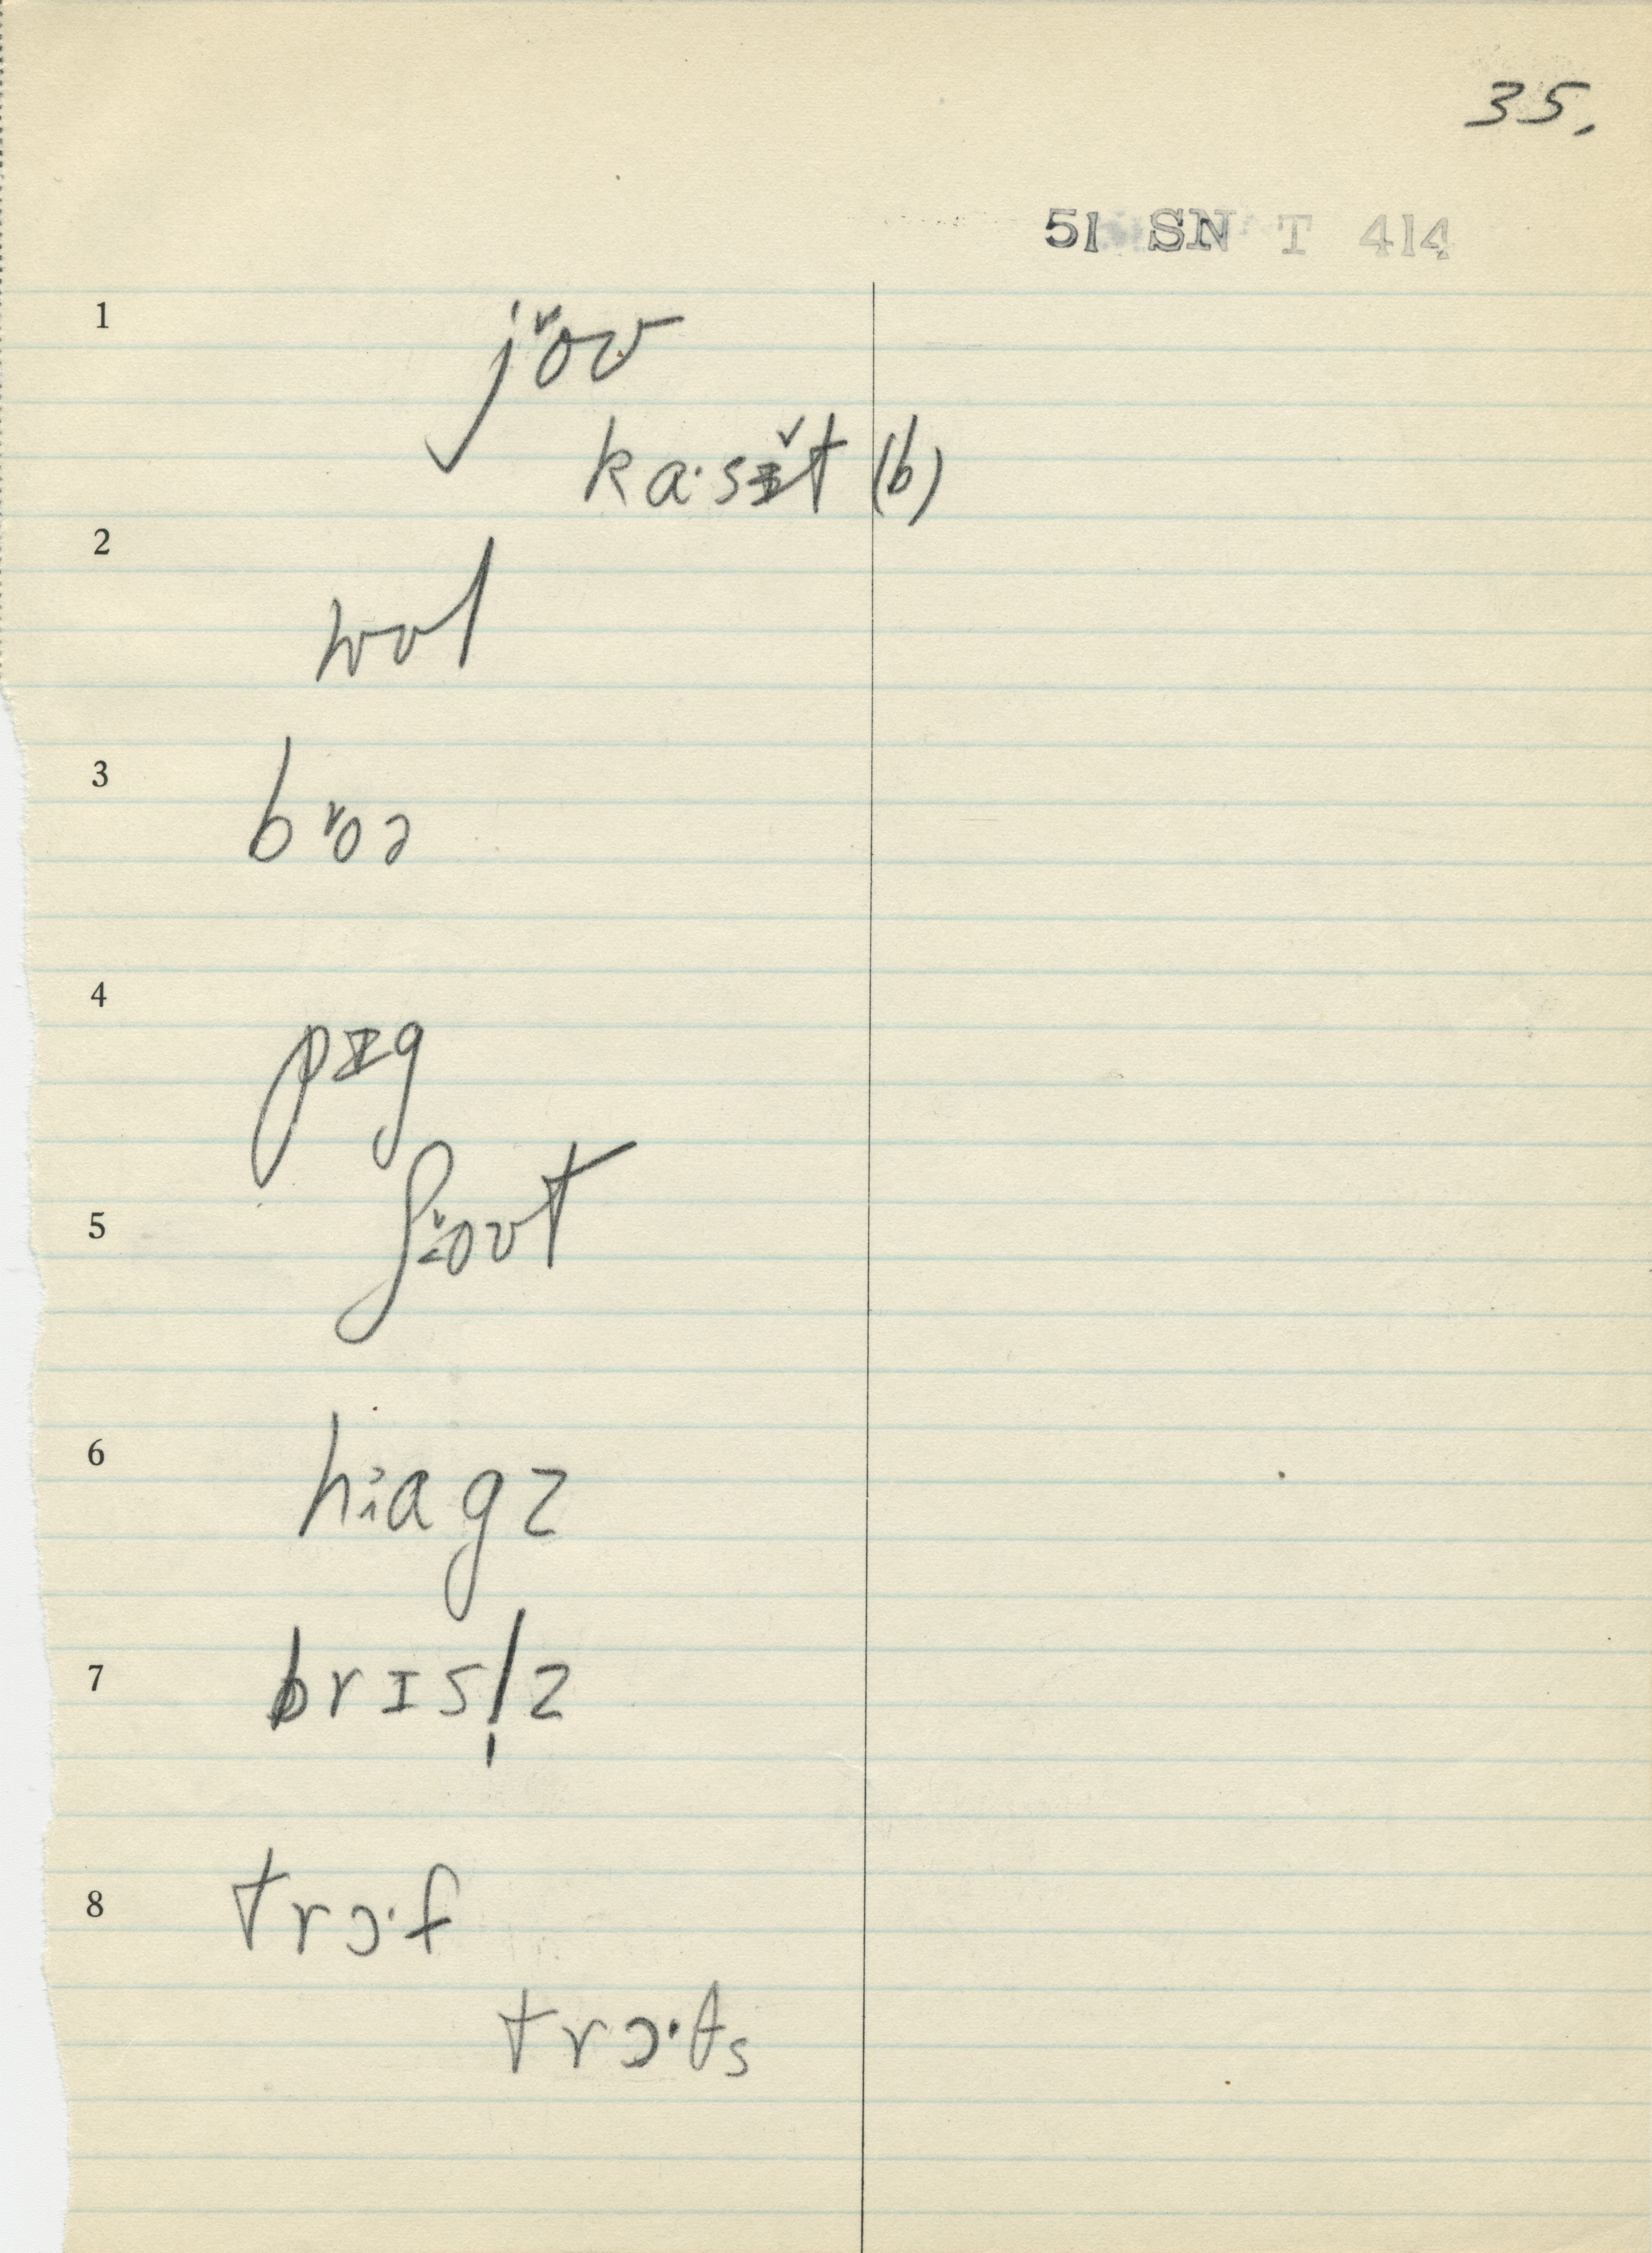 35.
51 SN T 414
1
jɤ̌oʊ
ka·sɪ̌t (b)
2
wʊl
3
bɤoə
4
pɪg
5
ʃoʊt
6
h:agz
7
brɪsl̩z
8
trɔ·f
trɔ·ts